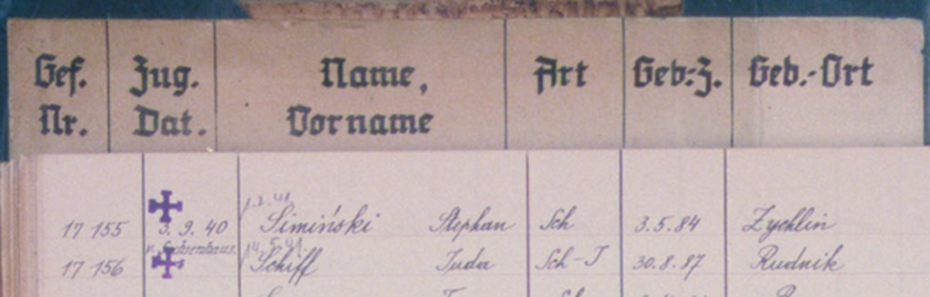 Gef. Zug. Name, Art Geb:Z. Geb.-Ort
Nr. Dat. Vorname
17 155 3. 9. 40 Simiński Stephan Sch 3.5.84 Zychlin
17 156 Schiff Juda Sch-J 30.8.87 Rudnik